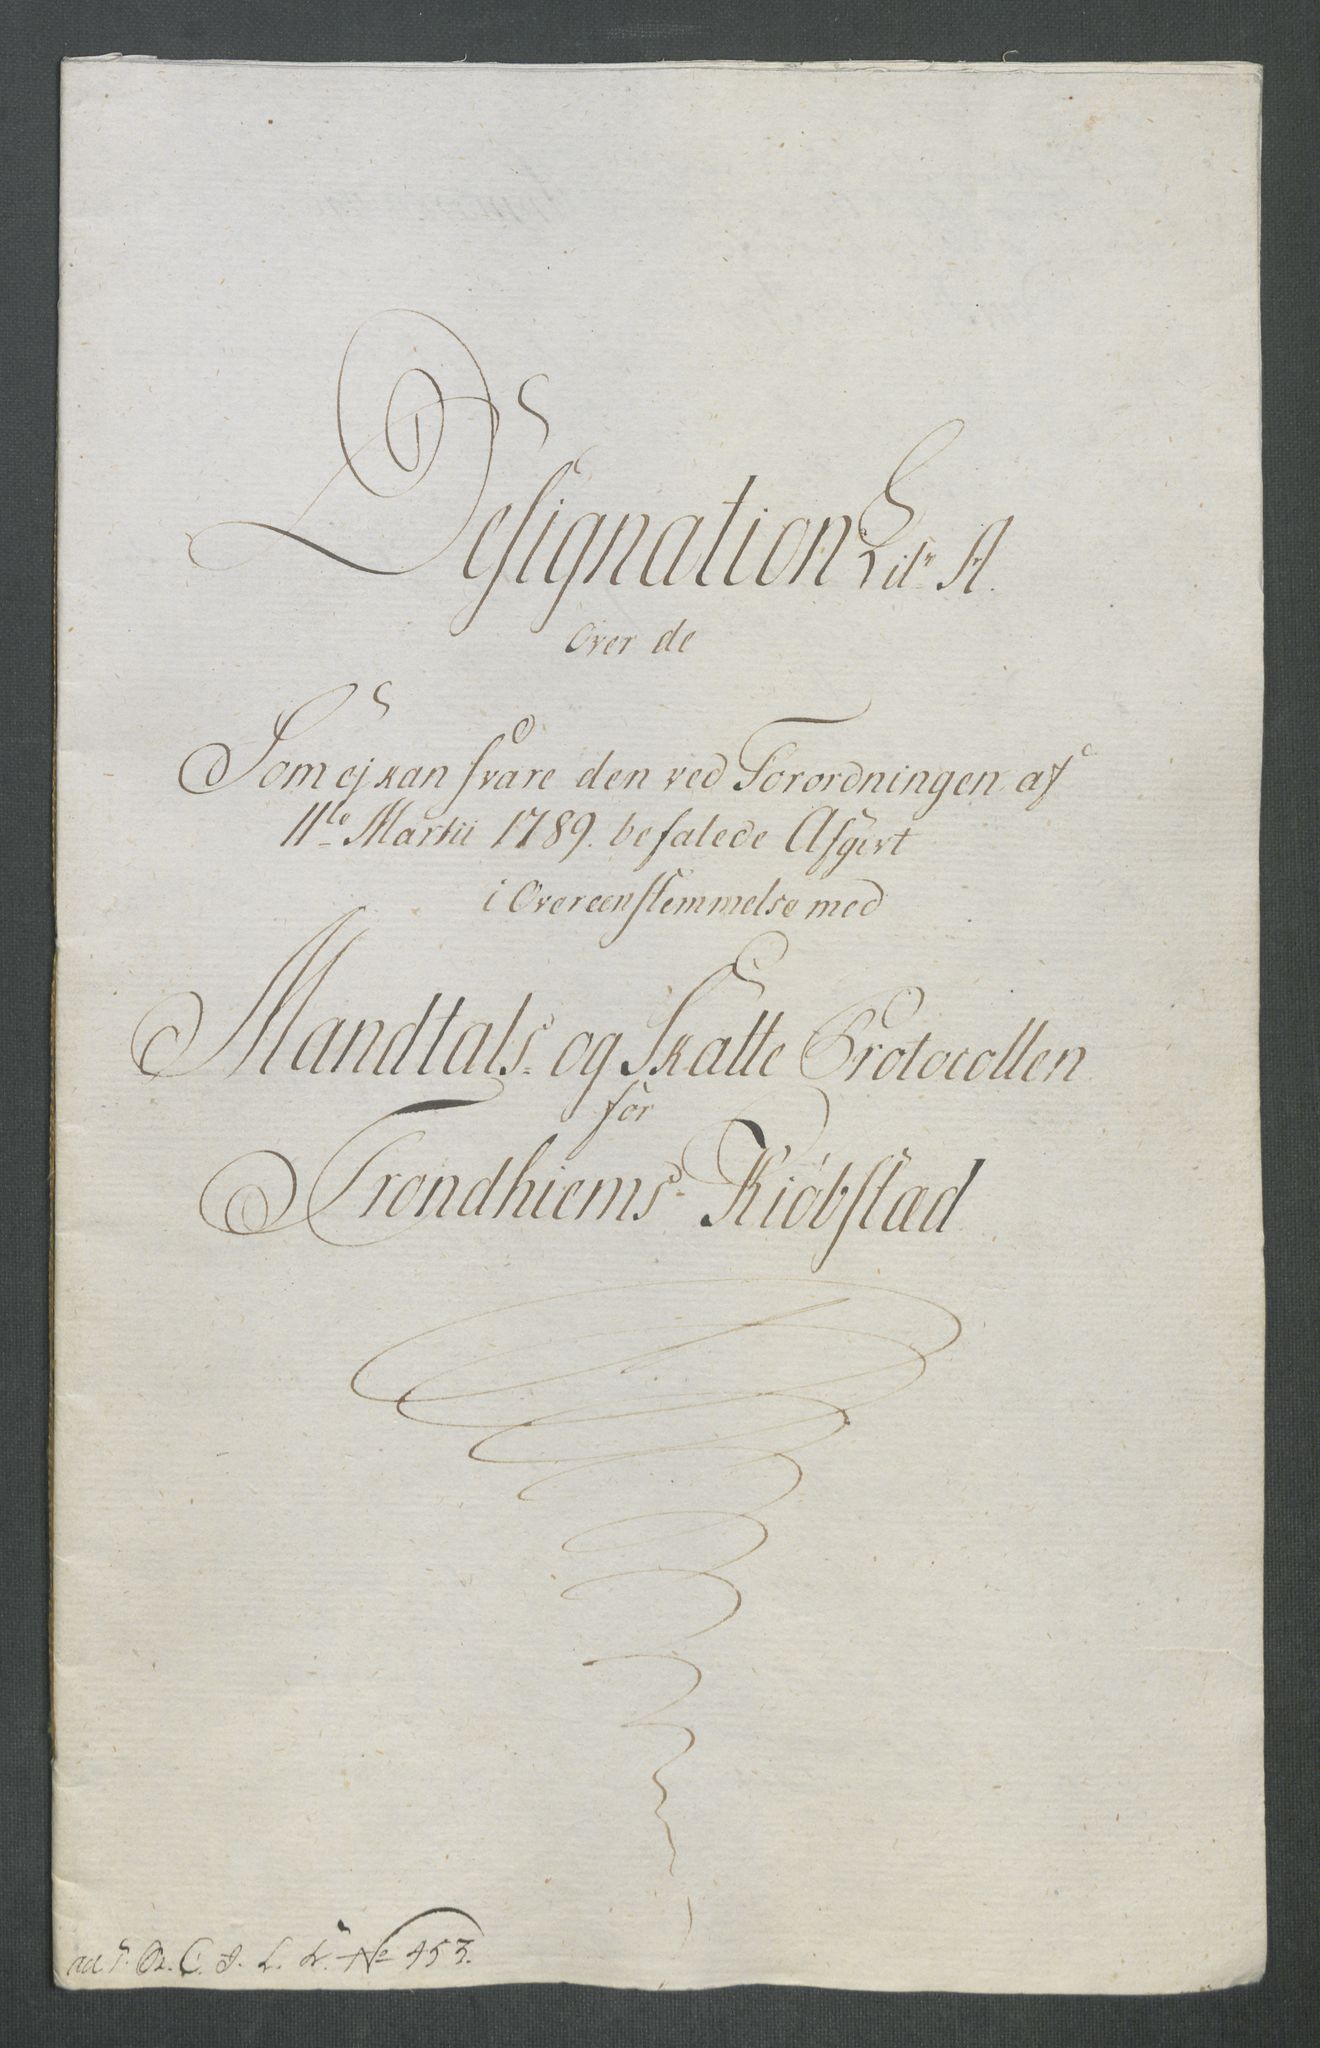 Designation Litr A.
Over de
Som ej kan svare den ved Forordningen af
11te Martii 1789. befalede Afgivt
i Overeenstemmelse med
Mandtals- og Skatte Protocollen
for
Trondhiems Kiøbstæd
ad No 453.